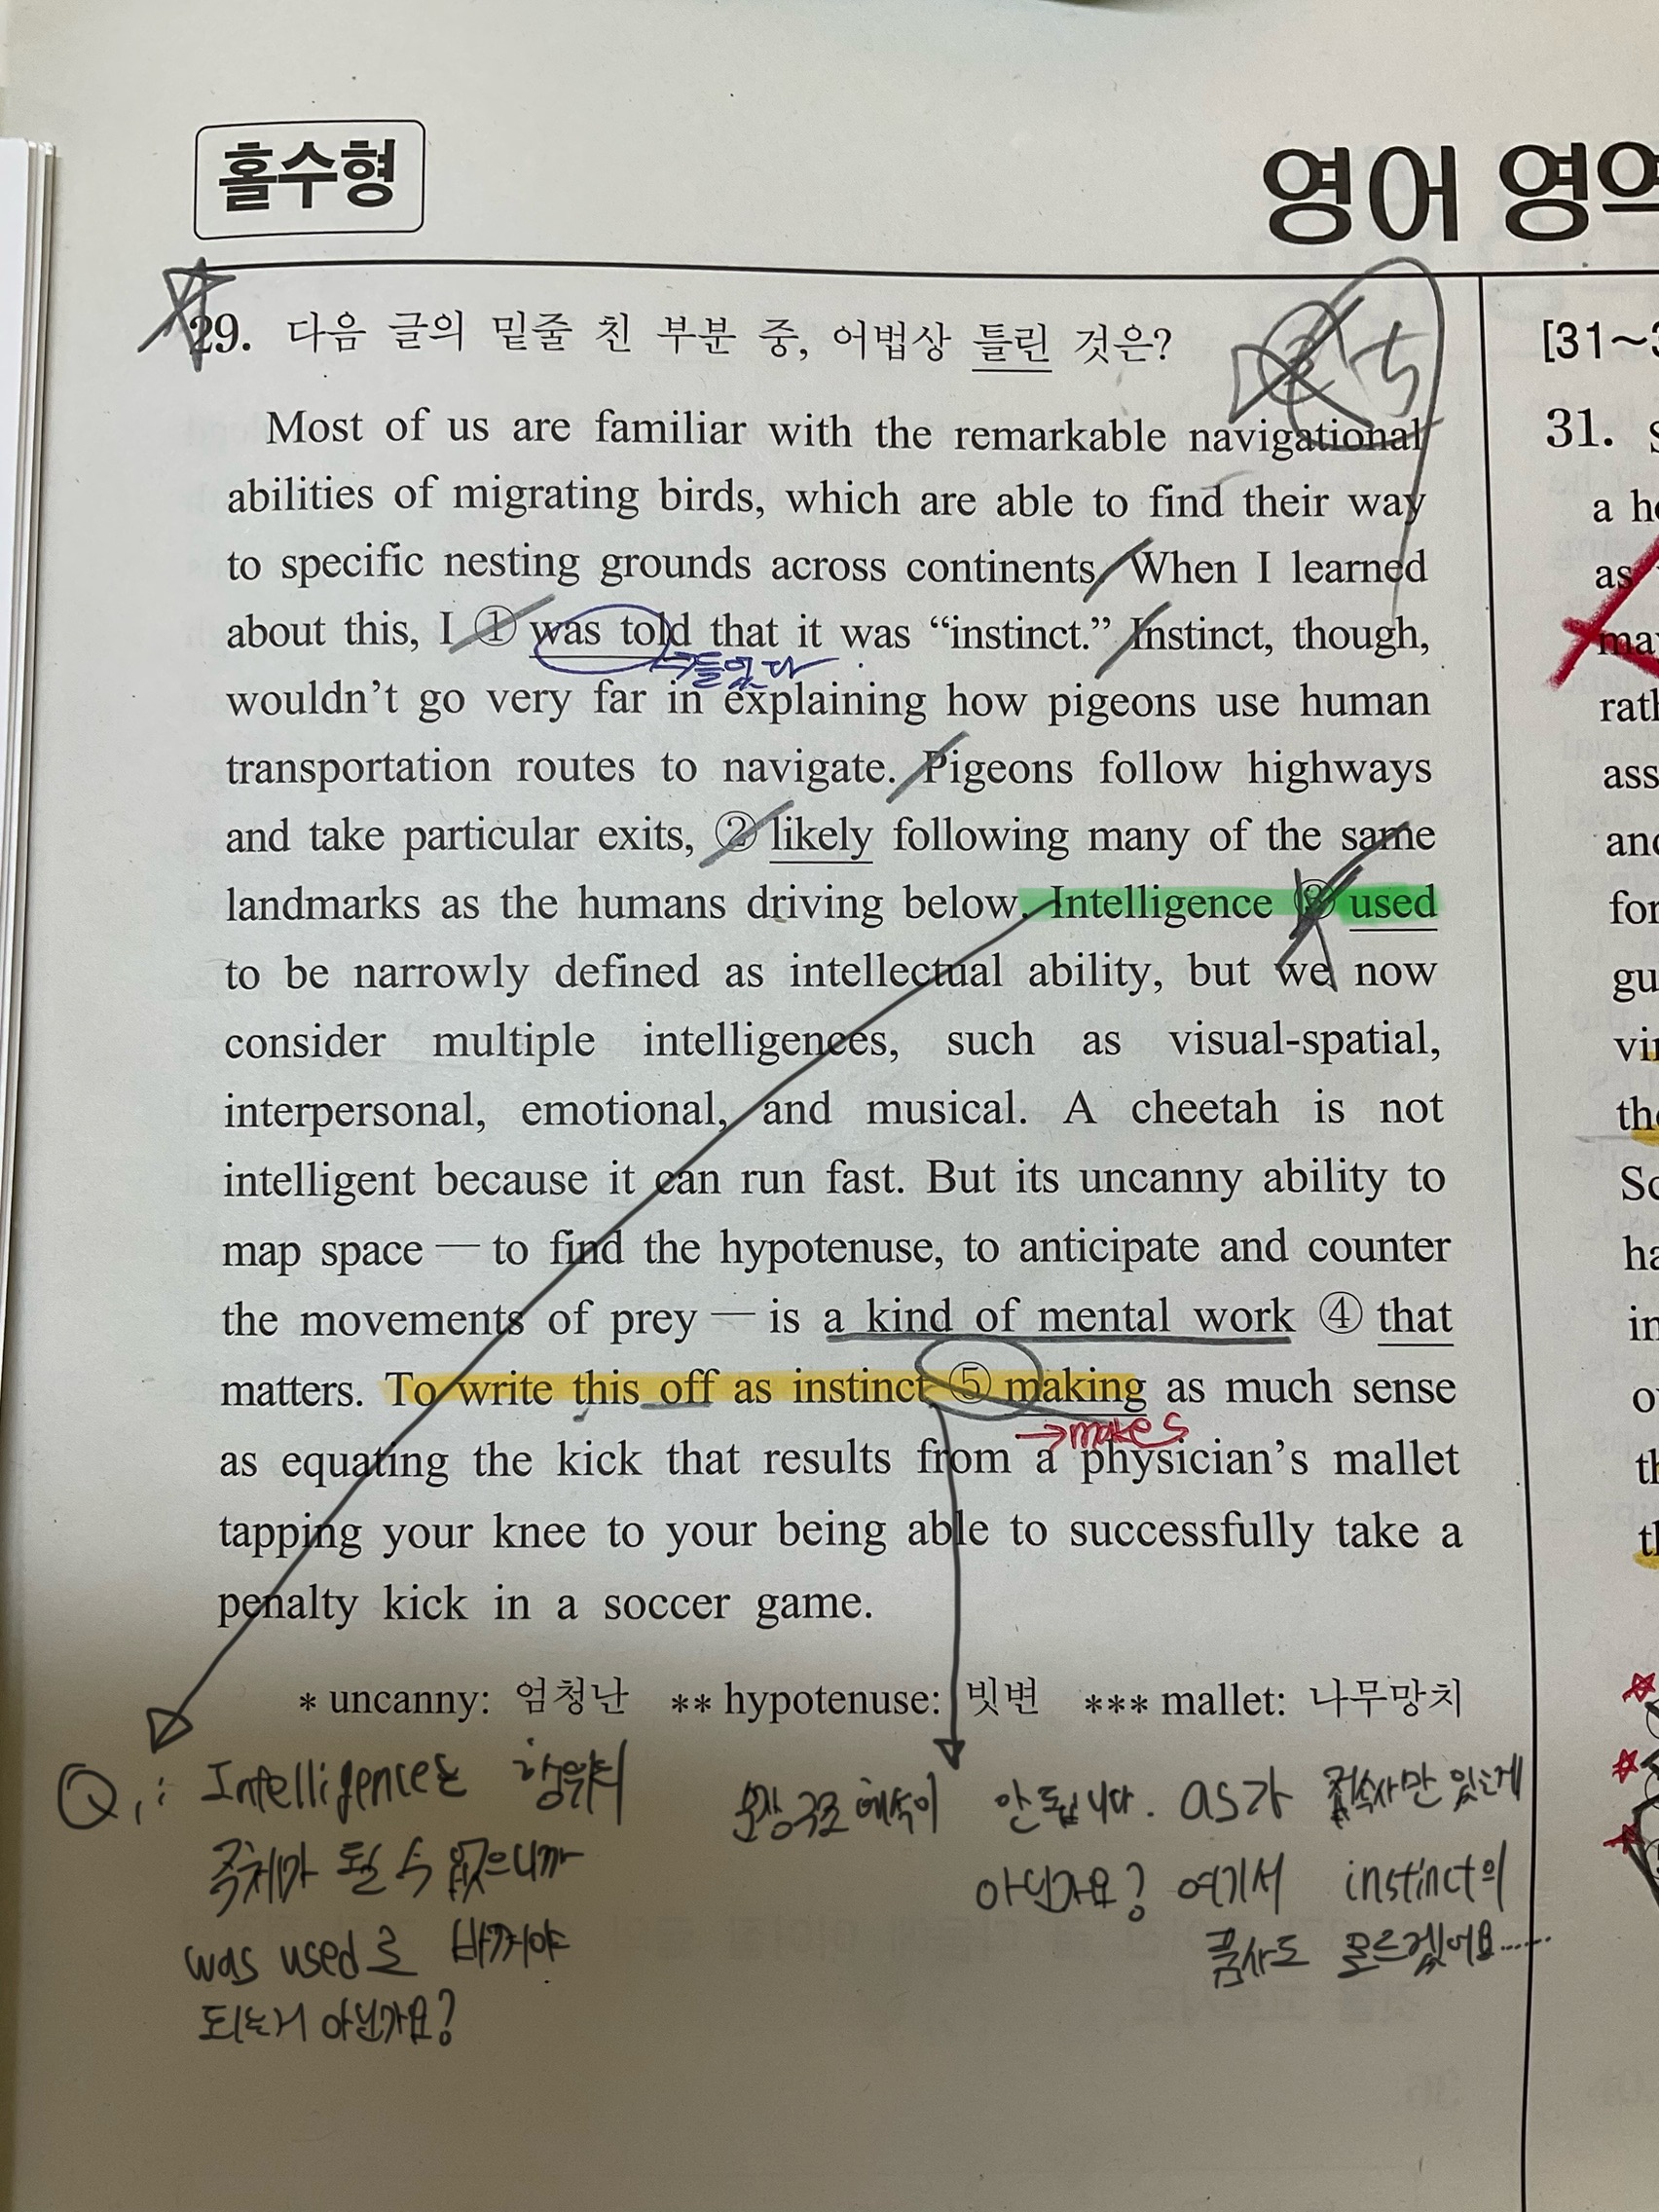 홀수형
영어 영역
29. 다음 글의 밑줄 친 부분 중, 어법상 틀린 것은?
5
Most of us are familiar with the remarkable navigational
abilities of migrating birds, which are able to find their way
to specific nesting grounds across continents. When I learned
about this, I ① was told that it was “instinct.” Instinct, though,
→들었다
wouldn’t go very far in explaining how pigeons use human
transportation routes to navigate. Pigeons follow highways
and take particular exits, ② likely following many of the same
landmarks as the humans driving below. Intelligence ③ used
to be narrowly defined as intellectual ability, but we now
consider multiple intelligences, such as visual-spatial,
interpersonal, emotional, and musical. A cheetah is not
intelligent because it can run fast. But its uncanny ability to
map space — to find the hypotenuse, to anticipate and counter
the movements of prey — is a kind of mental work ④ that
matters. To write this off as instinct ⑤ making as much sense
→makes
as equating the kick that results from a physician’s mallet
tapping your knee to your being able to successfully take a
penalty kick in a soccer game.
* uncanny: 엄청난 ** hypotenuse: 빗변 *** mallet: 나무망치
Q.: Intelligence는 행위의
주체가 될 수 없으니까
was used로 바뀌어야
되는거 아닌가요?
문장구조 해석이 안됩니다. as가 접속사만 있는게
아닌가요? 여기서 instinct의
품사도 모르겠어요......
[31~3
31.
a h
as
may
rath
ass
and
for
gu
vi
the
So
ha
in